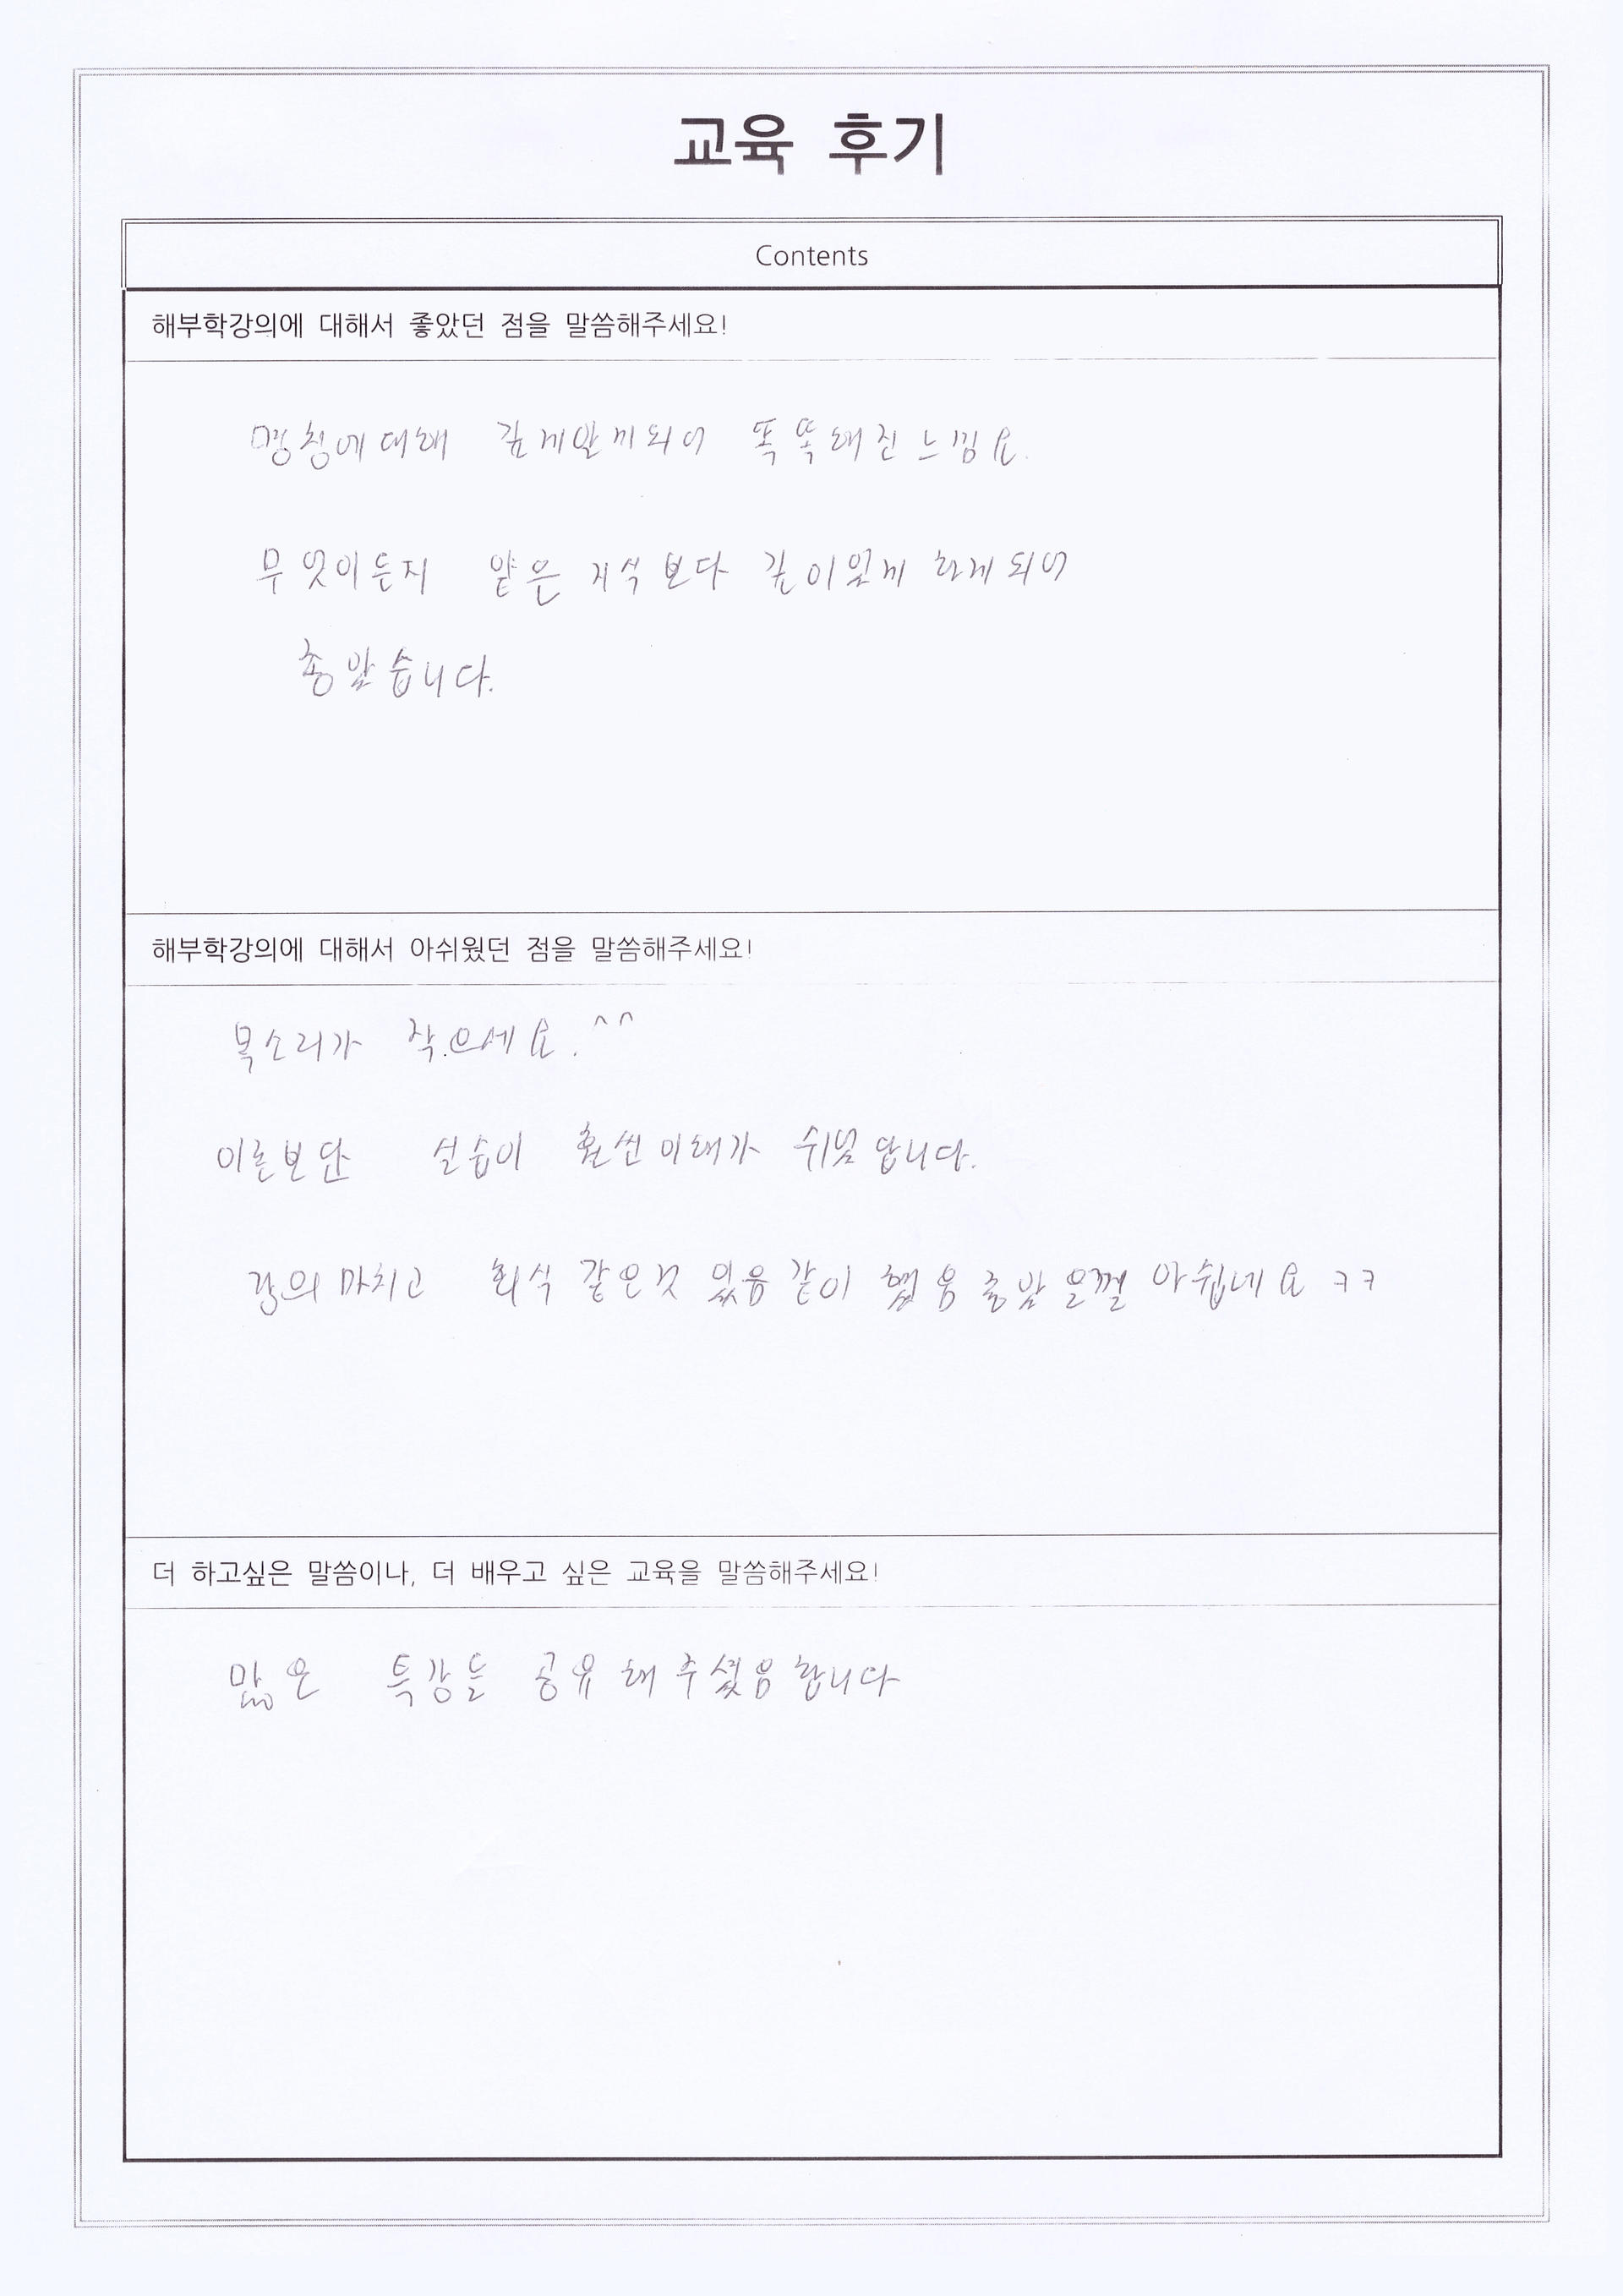 교육 후기
Contents
해부학강의에 대해서 좋았던 점을 말씀해주세요!
명칭에대해 깊게알게되어 똑똑해진느낌요.
무엇이든지 얕은 지식보다 깊이있게 하게되어
좋았습니다.
해부학강의에 대해서 아쉬웠던 점을 말씀해주세요!
목소리가 작으세요. ^^
이론보단 실습이 훨씬이해가 쉬웠답니다.
강의마치고 회식같은것 있음같이 했음좋았을껄 아쉽네요 ㅋㅋ
더 하고싶은 말씀이나, 더 배우고 싶은 교육을 말씀해주세요!
많은 특강들 공유해주셨음합니다